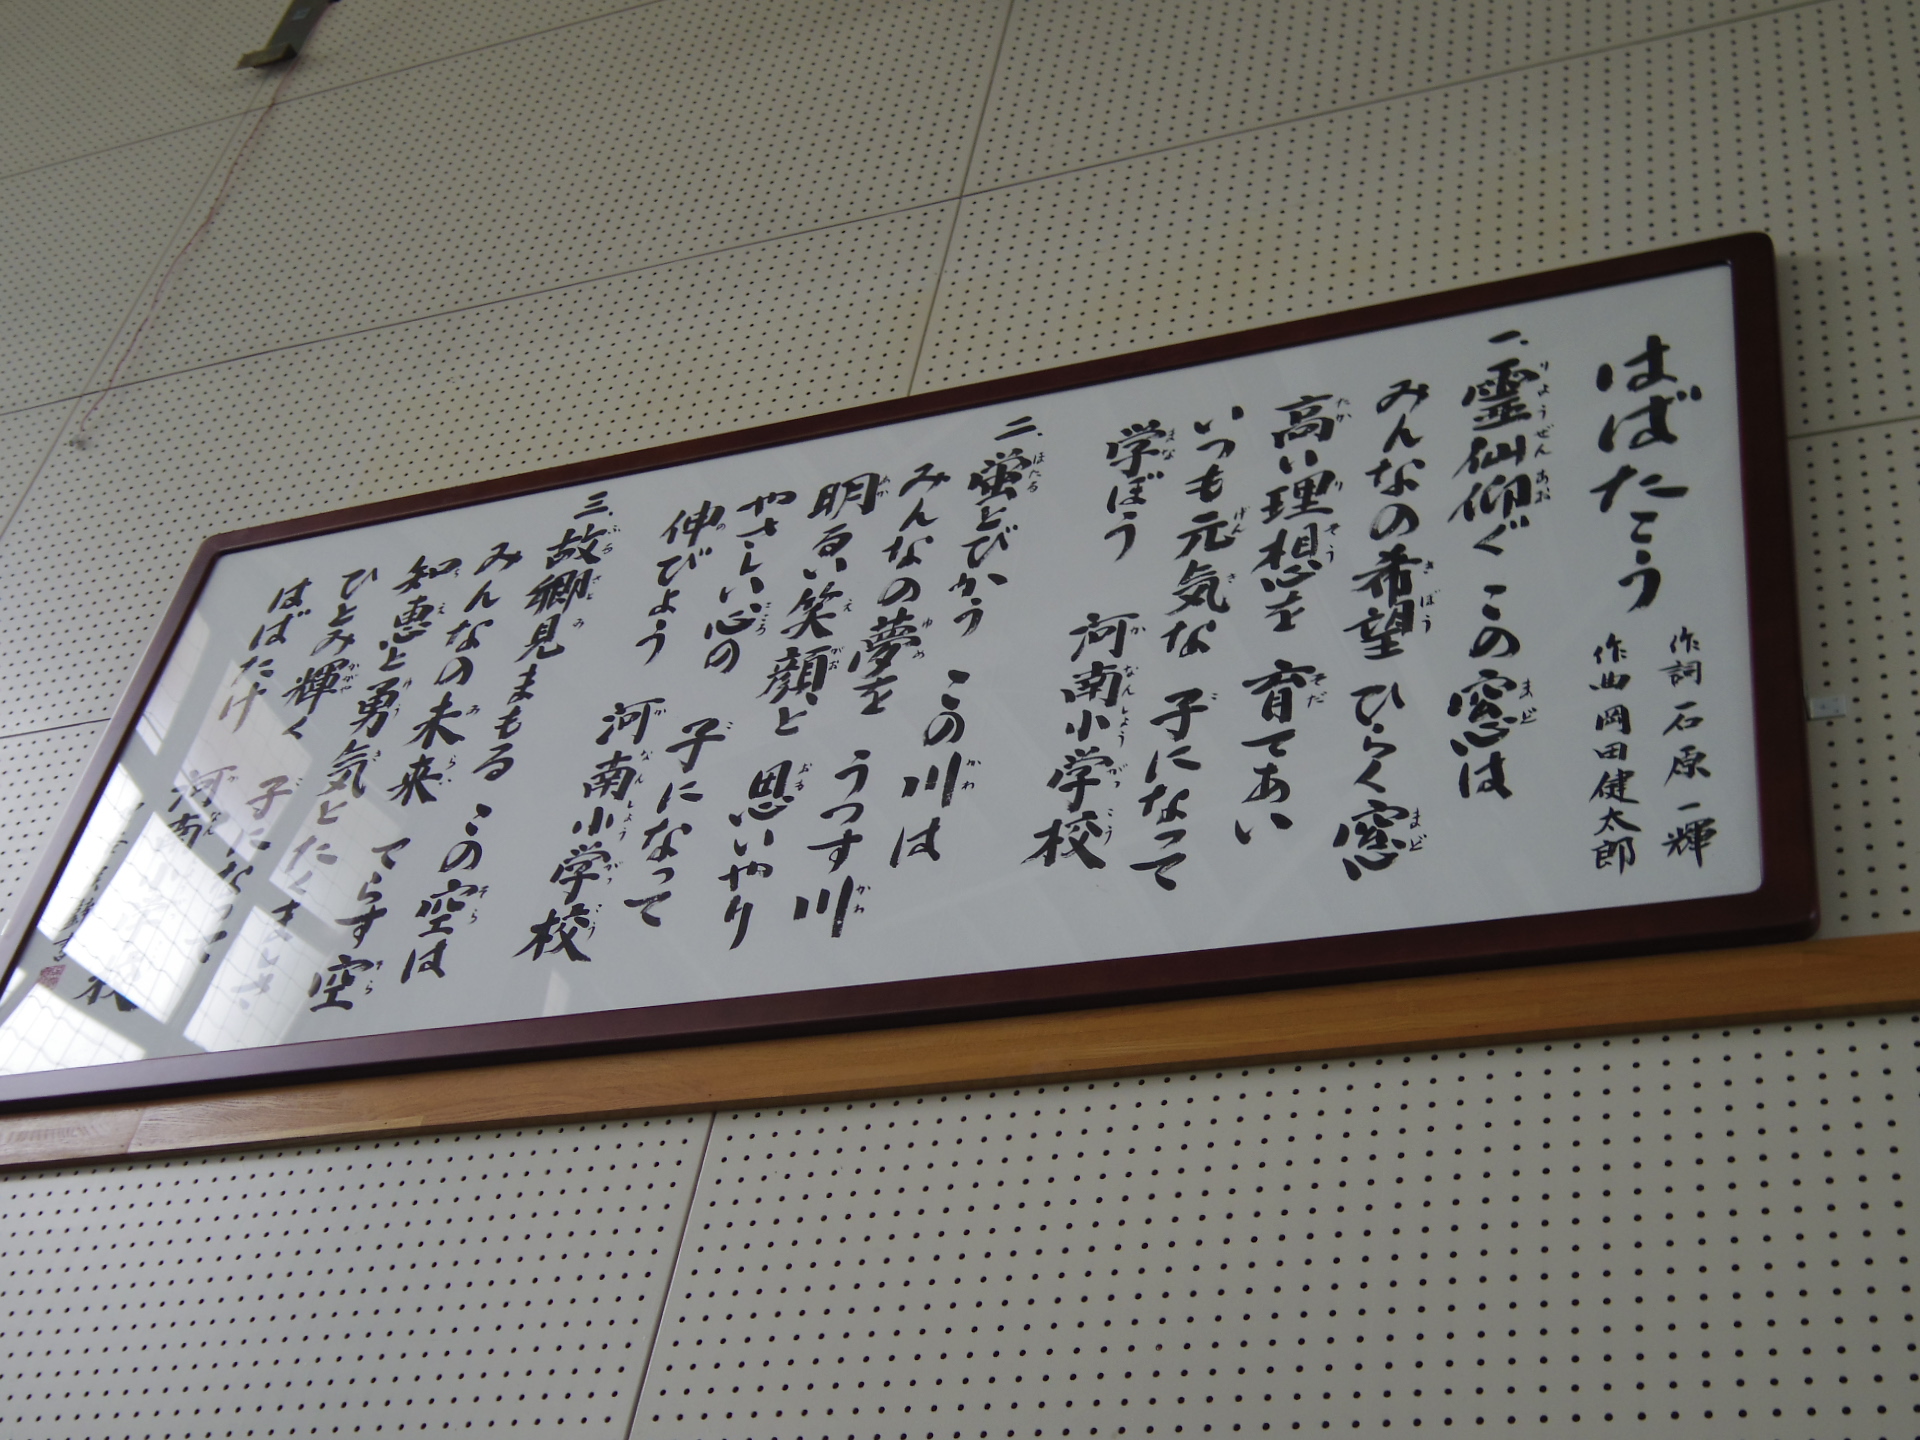 はばたこう
作詞 石原一輝
作曲 岡田健太郎
一、霊仙仰ぐ この窓は
みんなの希望 ひらく窓
高い理想を 育てあい
いつも元気な 子になって
学ぼう 河南小学校
二、蛍とびかう この川は
みんなの夢を うつす川
明るい笑顔と 思いやり
やさしい心の 子になって
伸びよう 河南小学校
三、故郷見まもる この空は
みんなの未来 てらす空
知恵と勇気と たくましさ
ひとみ輝く 子になって
はばたけ 河南小学校